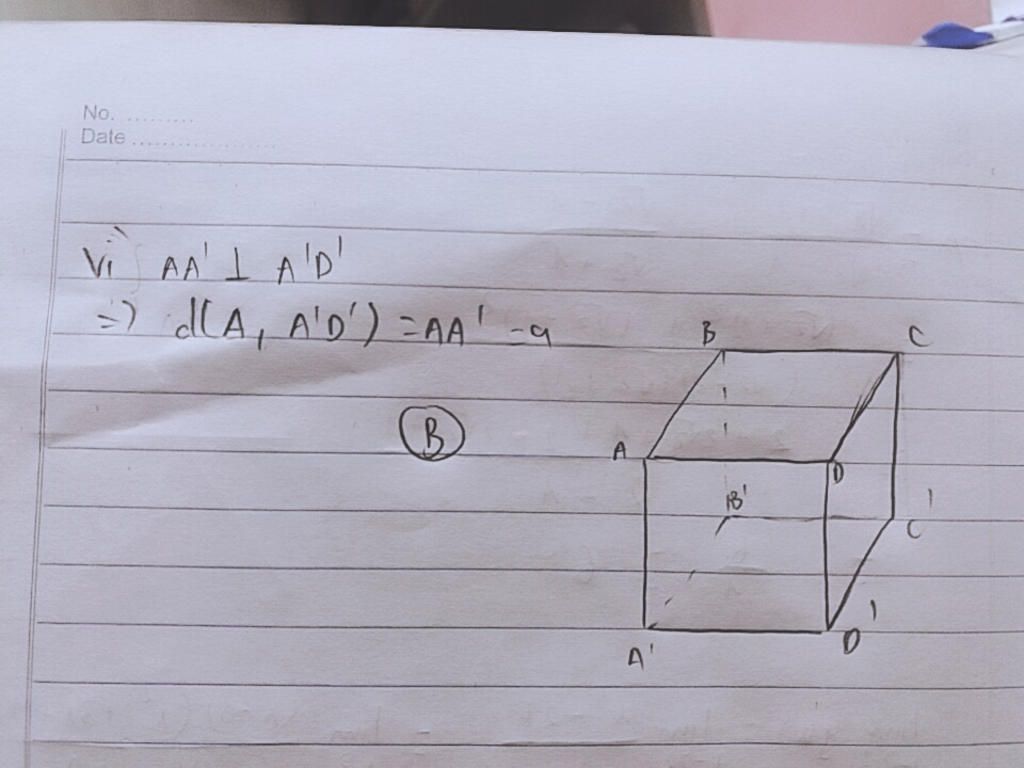 No. .........
Date ....................
Vì AA' ⊥ A'D'
=) d(A, A'D') = AA' = a
B C
B
A D
B'
C'
A' D'